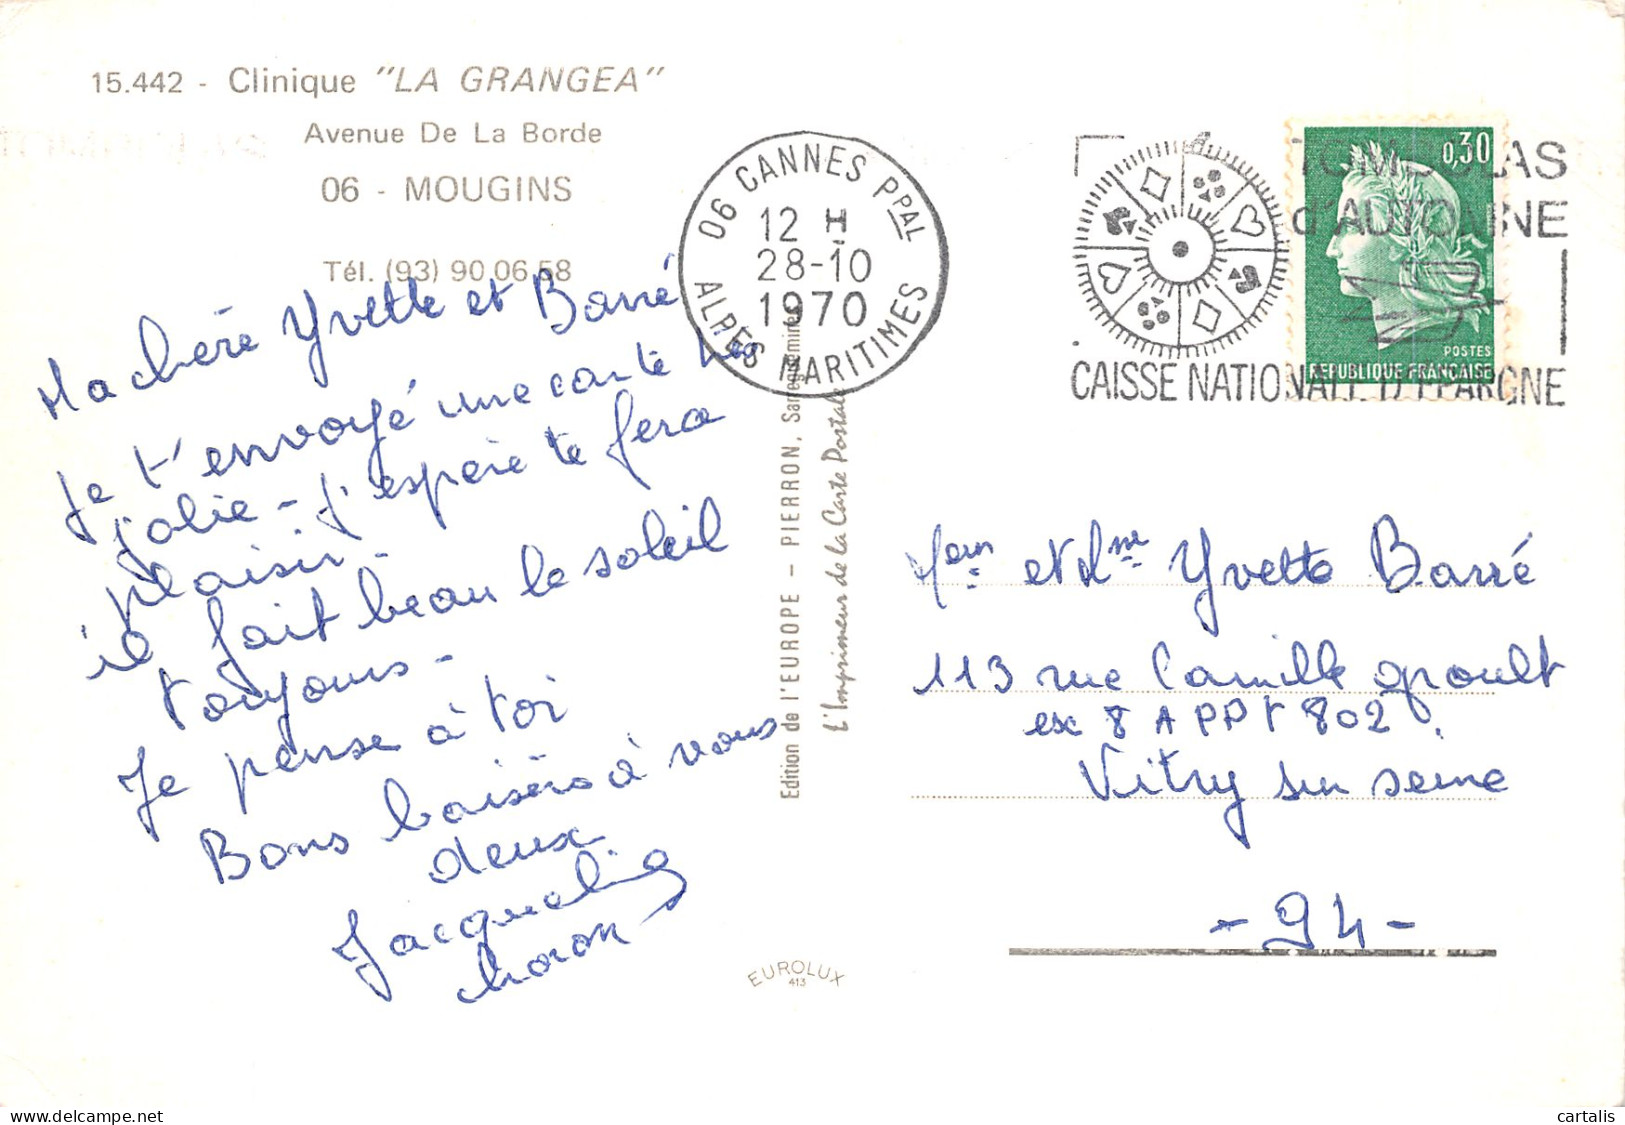 15.442 - Clinique "LA GRANGEA"
Avenue De La Borde
06 - MOUGINS
Tél. (93) 90.06.58
Ma chère Yvette et Barré
Je t'envoyé une carte très
jolie - j'espère te fera
plaisir -
il fait beau le soleil
toujours -
Je pense à toi
Bons baisers à vous
deux
Jacqueline
06 CANNES PPAL
12 H
28-10
1970
ALPES MARITIMES
TOMBOLAS
d'AUTOMNE
CAISSE NATIONALE D'EPARGNE
0,30
POSTES
REPUBLIQUE FRANÇAISE
Edition de l'EUROPE - PIERRON, Sarreguemines
L'Imprimeur de la Carte Postale
EUROLUX
413
et Mme Yvette Barré
113 rue Camille groult
esc 8 APPT 802.
Vitry sur seine
- 94 -
cartalis